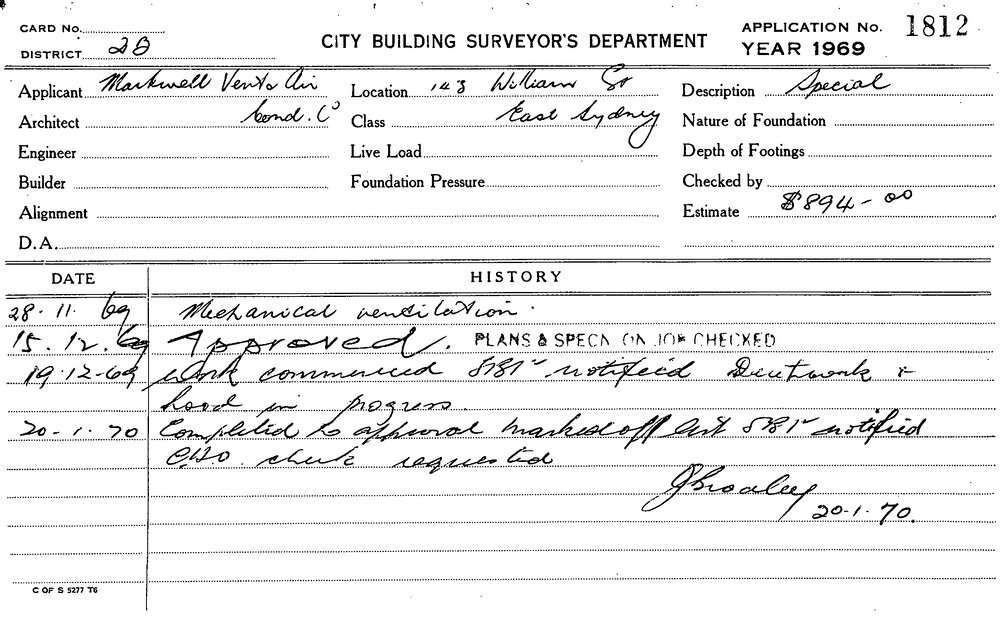 CARD No.
DISTRICT 2B
CITY BUILDING SURVEYOR'S DEPARTMENT
APPLICATION No. 1812
YEAR 1969
Applicant Markwell Vent & Air
Location 143 William St
Description Special
Architect Cond. Co
Class East Sydney
Nature of Foundation
Engineer
Live Load
Depth of Footings
Builder
Foundation Pressure
Checked by
Alignment
Estimate $894-00
D.A.
DATE
HISTORY
28.11.69 Mechanical ventilation.
15.12.69 Approved. PLANS & SPECN ON JOB CHECKED
19.12.69 Work commenced notified Ductwork &
hood in progress.
20-1-70 Completed to approval marked off list notified
check requested
20-1-70.
C OF S 5277 T6